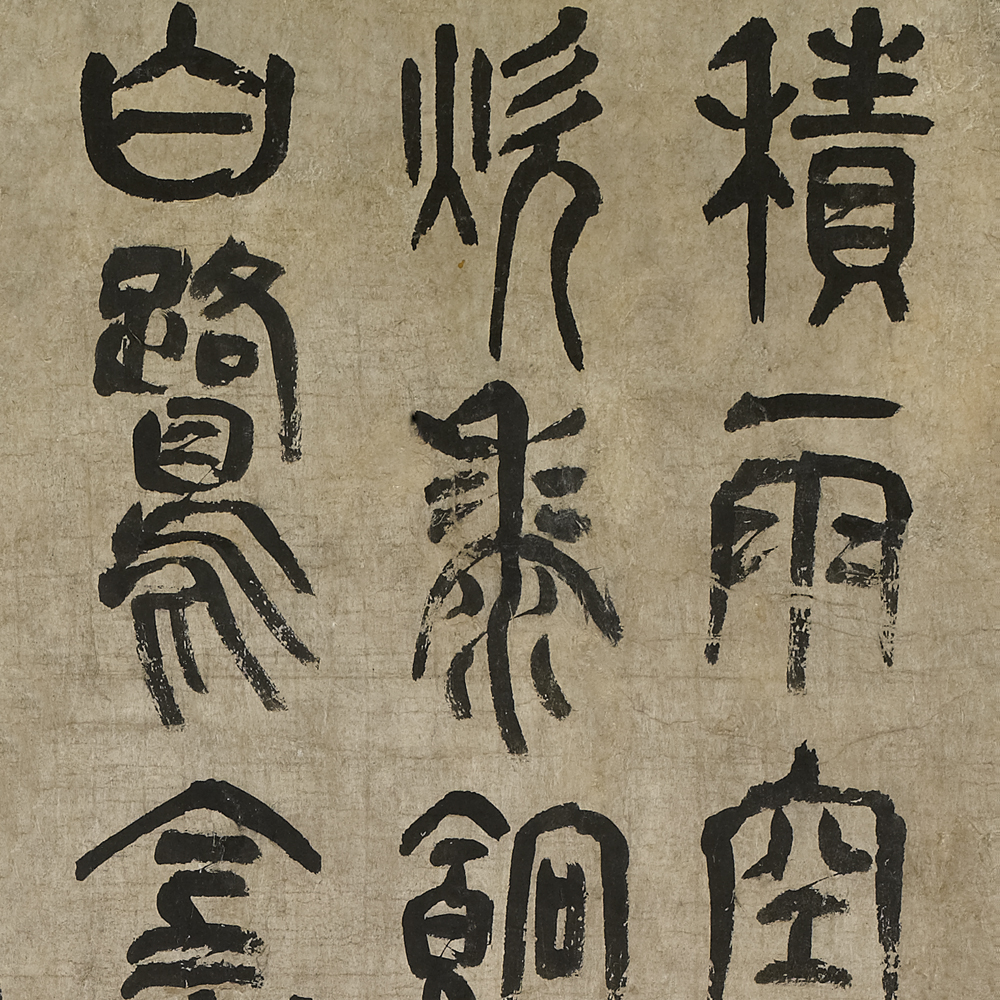 積雨空
炊黍餉
白鷺陰